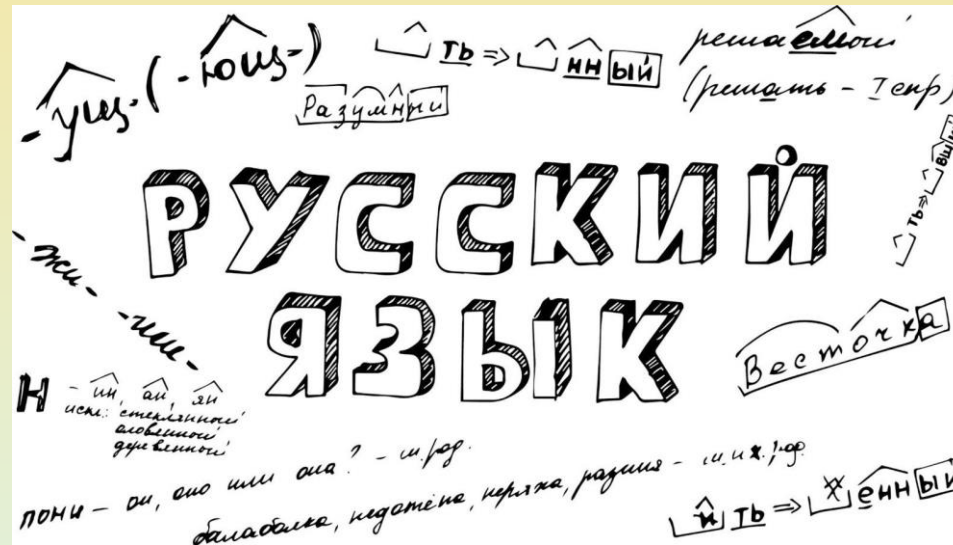 -ущ- (-ющ-)
ть => нный
Разумный
решаемый
(решать - I спр)
ть => вш
РУССКИЙ
ЯЗЫК
-жи-
-ши-
Весточка
Н - ин, ан, ян
искл: стеклянный
оловянный
деревянный
пони - он, оно или она? - м.род.
балаболка, недотёпа, неряха, разиня -
и ть => енный